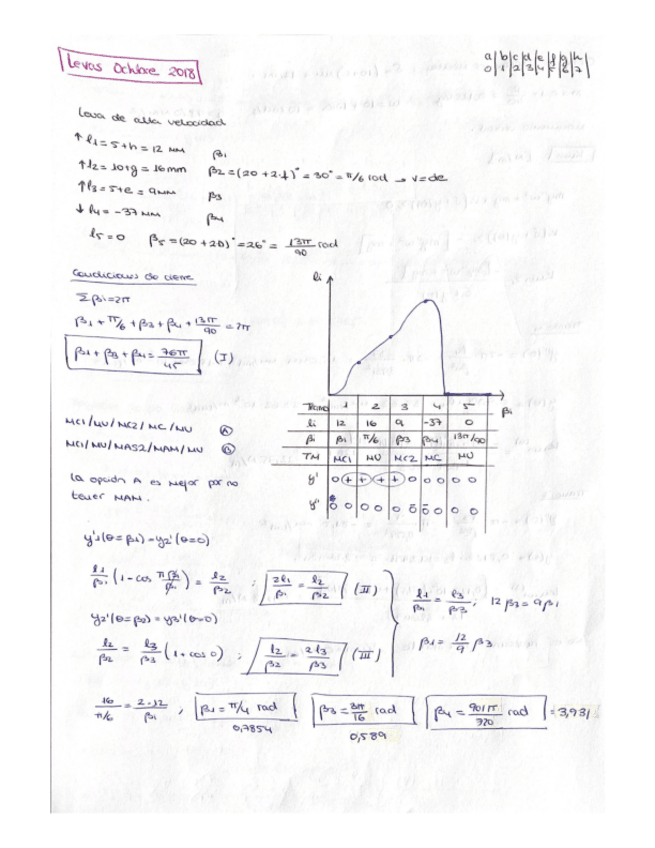 Levas Octubre 2018
a|b|c|d|e|f|g|h
0|1|2|3|4|5|6|7
Leva de alta velocidad
↑ l1 = 5+h = 12 mm β1
↑ l2 = 10+g = 16 mm β2 = (20+2·f)° = 30° = π/6 rad → v=cte
↑ l3 = 5+e = 9 mm β3
↓ l4 = -37 mm β4
l5 = 0 β5 = (20+2d)° = 26° = 13π/90 rad
Condiciones de cierre
Σβi = 2π
β1 + π/6 + β3 + β4 + 13π/90 = 2π
β1 + β3 + β4 = 76π/45 (I)
li
βi
Tramo 1 2 3 4 5
li 12 16 9 -37 0
βi β1 π/6 β3 β4 13π/90
TM MC1 MU MC2 MC MU
y' 0 + + + + 0 0 0 0 0
y'' 0 0 0 0 0 0 0 0 0 0
MC1/MU/MC2/MC/MU A
MC1/MU/MAS2/MAM/MU B
La opción A es mejor por no
tener MAM.
y'1(θ=β1) = y2'(θ=0)
l1/β1 (1 - cos π β1/β1) = l2/β2 ; 2l1/β1 = l2/β2 (II)
y2'(θ=β2) = y3'(θ=0)
l2/β2 = l3/β3 (1 + cos 0) ; l2/β2 = 2l3/β3 (III)
l1/β1 = l3/β3 ; 12β3 = 9β1
β1 = 12/9 β3
16/π/6 = 2·12/β1 ; β1 = π/4 rad β3 = 3π/16 rad β4 = 901π/720 rad = 3,931
0,7854 0,589